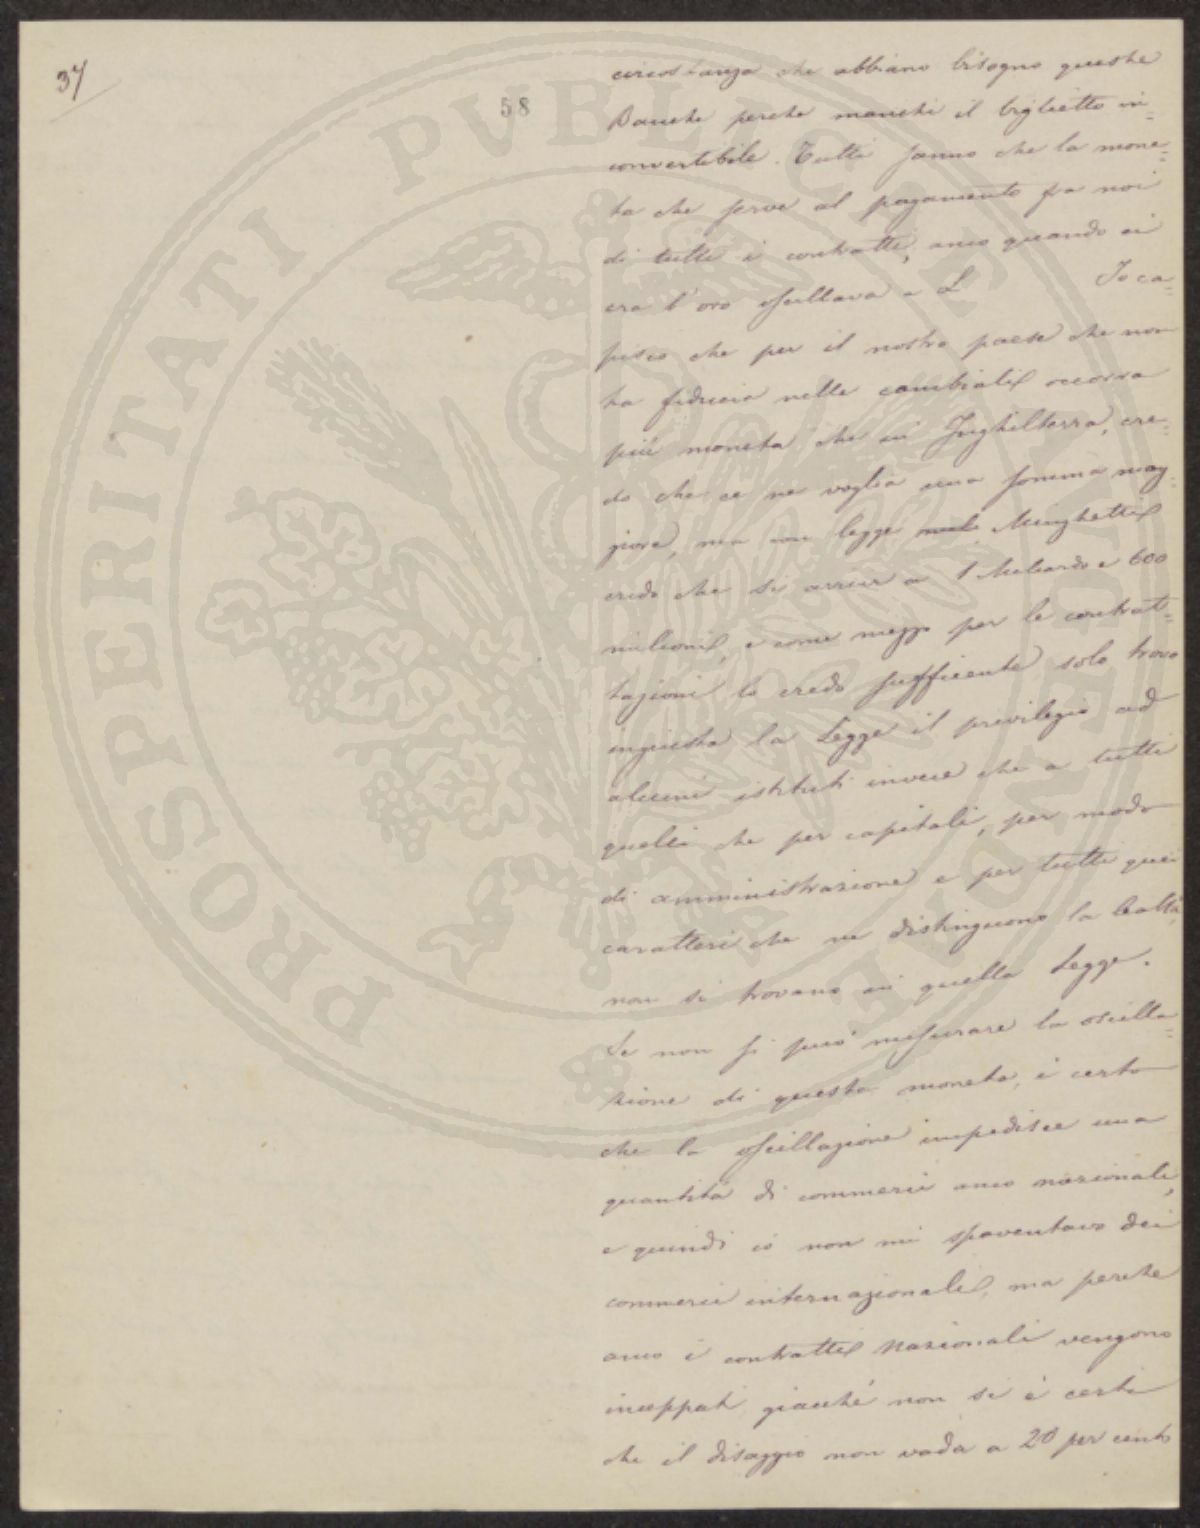 37
58
circostanza che abbiano bisogno queste
Banche perche manchi il biglietto in=
convertibile. Tutti sanno che la mone=
ta che serve al pagamento fra noi
di tutti i contratti, anco quando ci
era l'oro a L Io ca=
pisco che per il nostro paese che non
ha fiducia nelle cambiali occorra
più moneta che in Inghilterra, cre=
do che ce ne voglia una somma mag=
giore, ma con legge Minghetti
credo che si arrivi a 1 Miliardo e 600
milioni, e come mezzo per le contrat=
tazioni lo credo sufficiente solo trovo
ingiusta la Legge il privilegio ad
alcuni istituti invece che a tutti
quelli che per capitali, per modo
di amministrazione e per tutti quei
caratteri che ne distinguono la lealtà,
non si trovano in quella Legge.
Se non si può misurare la oscilla=
zione di questa moneta, è certo
che la oscillazione impedisce una
quantità di commerci anco nazionali,
e quindi io non mi spaventavo dei
commerci internazionali, ma perche
anco i contratti nazionali vengono
inceppati giacché non si è certi
che il disaggio non vada a 20 per cento
PROSPERITATI PVBLICAE AVGENDAE